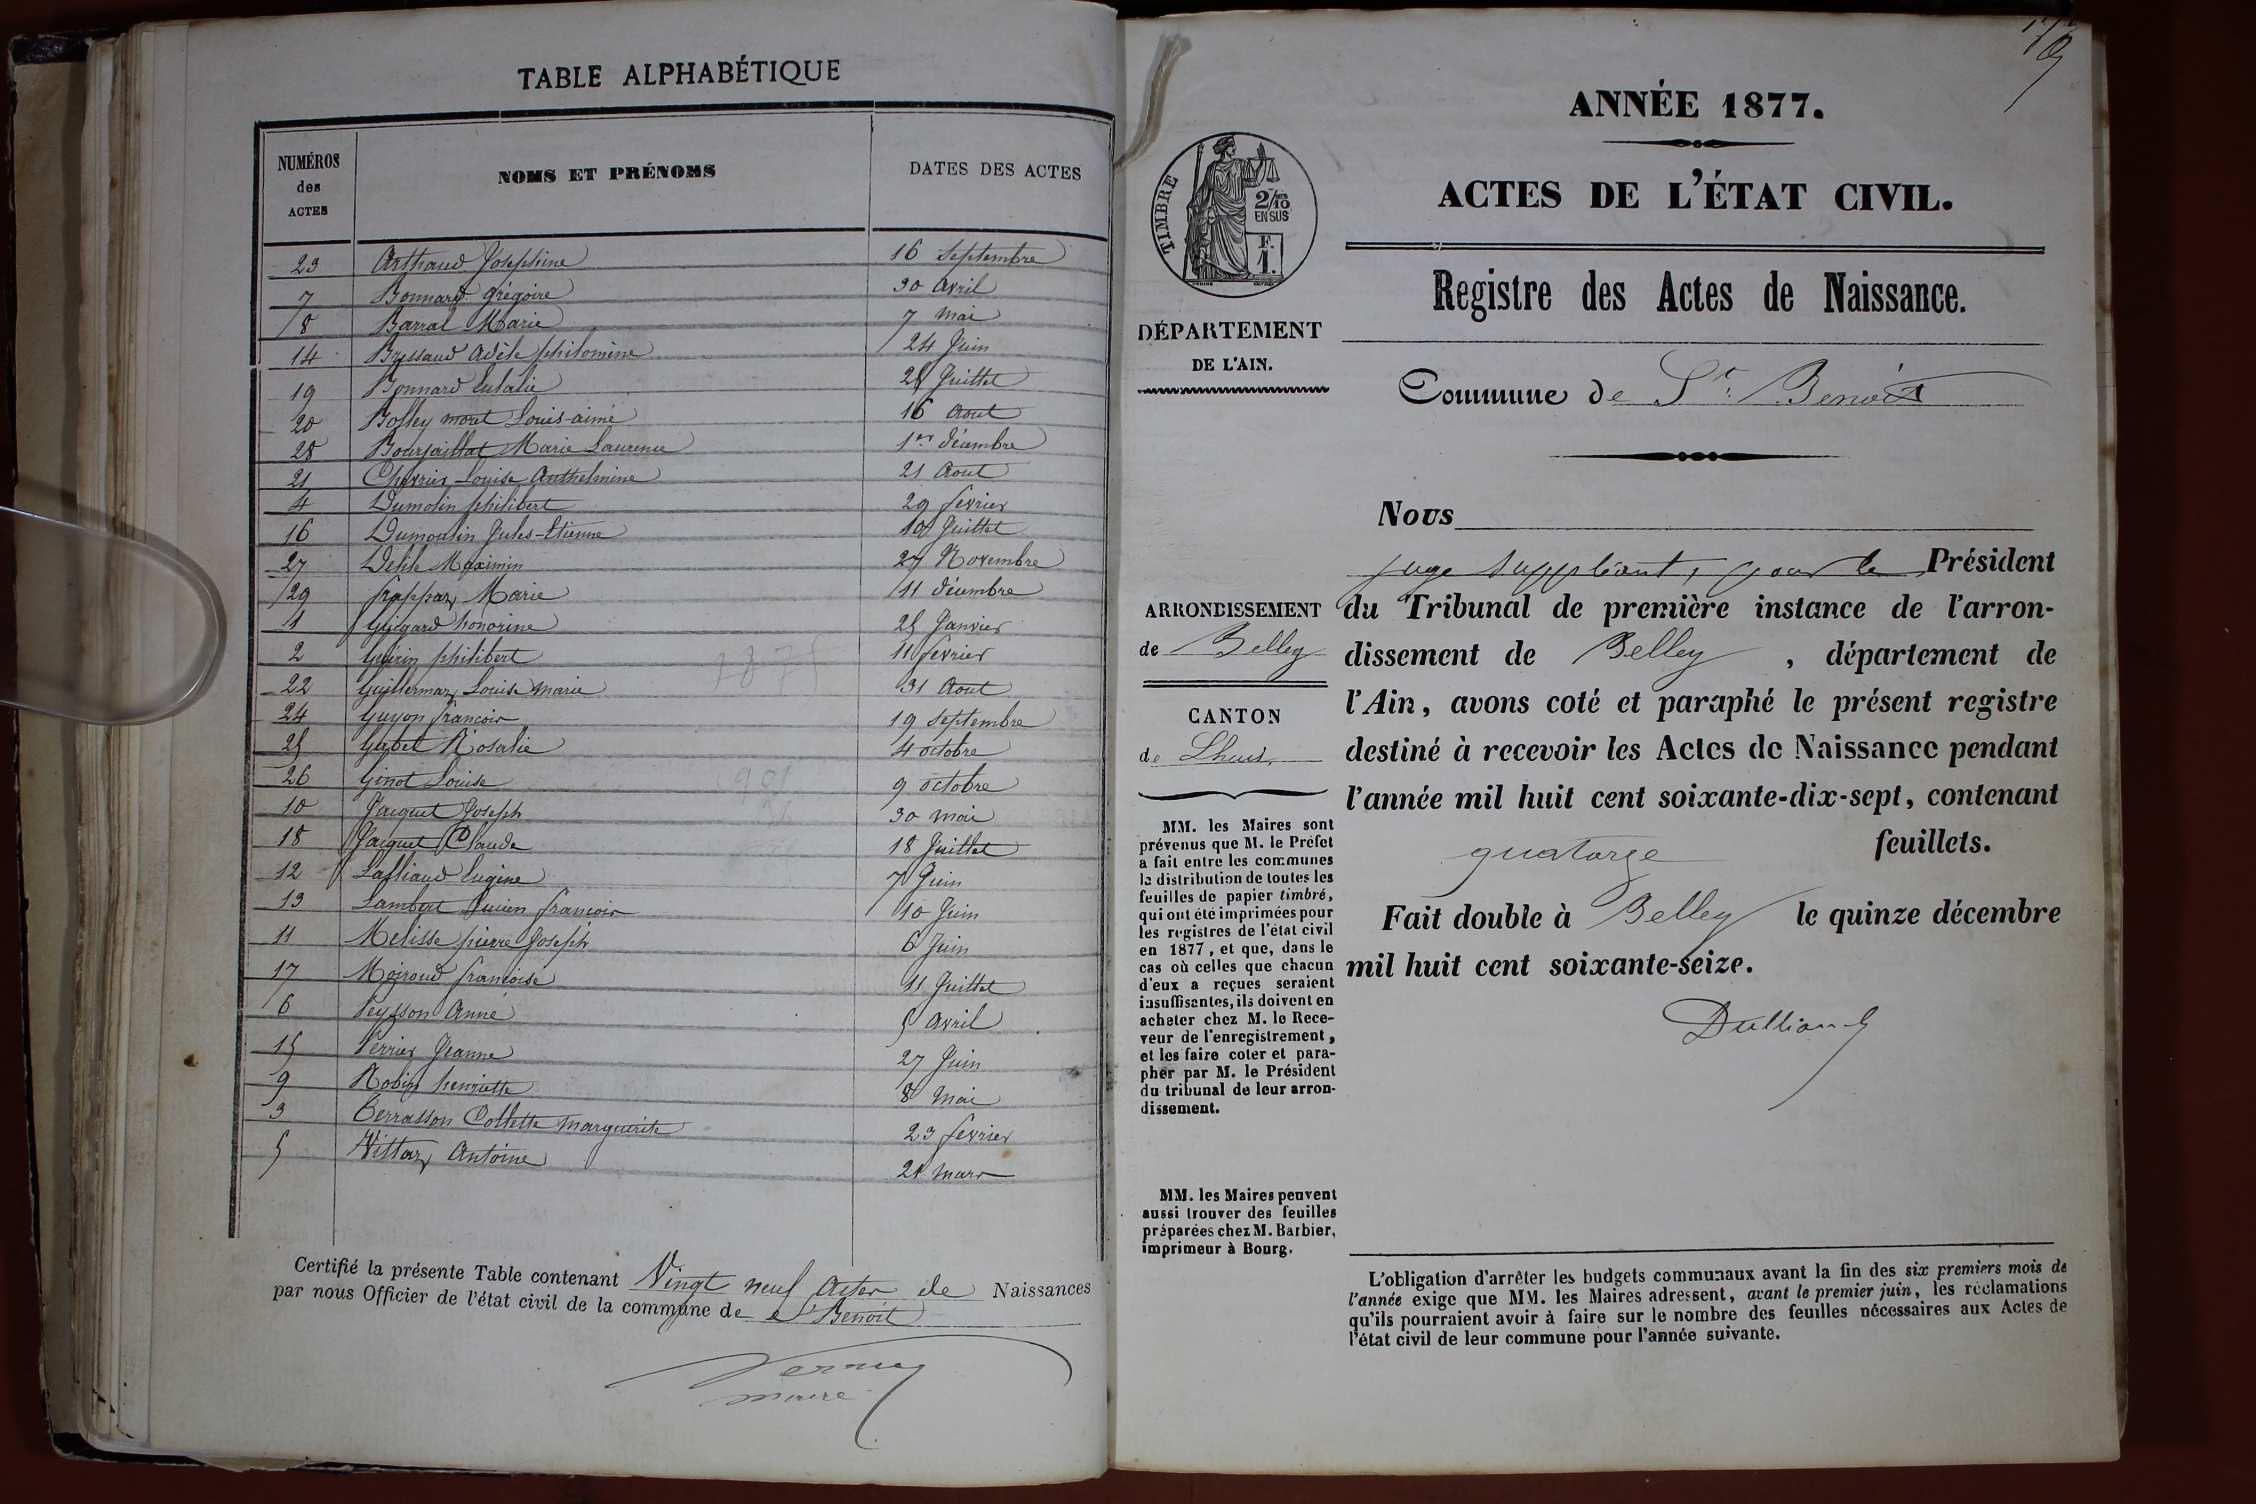 TABLE ALPHABÉTIQUE
NUMÉROS des ACTES
NOMS ET PRÉNOMS
DATES DES ACTES
23 Arthaud Joséphine 16 Septembre
7 Bonnard grégoire 30 Avril
8 Barral Marie 7 mai
14 Brissaud Adèle philomène 24 Juin
19 Bonnard Eulalie 25 Juillet
20 Bolley moret Louis-aimé 16 Aout
28 Bourjaillat Marie Laurence 1er décembre
21 Chevrier Louise Anthelmine 21 Aout
4 Dumolin philibert 29 fevrier
16 Dumoulin Jules-Etienne 10 Juillet
27 Maximin 27 Novembre
29 frappaz Marie 11 décembre
1 honorine 25 Janvier
2 Guérin philibert 11 fevrier
22 Guillermaz Louise marie 31 Aout
24 Guyon françois 19 septembre
25 Rosalie 4 octobre
26 Ginot Louise 9 octobre
10 Jacquet Joseph 30 mai
18 Jacquet Claude 18 Juillet
12 Eugène 7 Juin
13 Lambert françois 10 Juin
11 Melisse pierre Joseph 6 Juin
17 Moiroud françoise 11 Juillet
6 Peysson Anne 5 Avril
15 Perrier Jeanne 27 Juin
9 Robin henriette 8 Mai
3 Terrasson Collette marguerite 23 fevrier
5 Vittoz Antoine 21 mars
Certifié la présente Table contenant Vingt neuf Actes de Naissances
par nous Officier de l'état civil de la commune de St Benoit
maire
ANNÉE 1877.
ACTES DE L'ÉTAT CIVIL.
TIMBRE
2/10
EN SUS
F.
1.
Registre des Actes de Naissance.
DÉPARTEMENT
DE L'AIN.
Commune de St. Benoit
Nous
juge suppléant, pour le Président
ARRONDISSEMENT
de Belley
du Tribunal de première instance de l'arron-
dissement de Belley, département de
l'Ain, avons coté et paraphé le présent registre
destiné à recevoir les Actes de Naissance pendant
l'année mil huit cent soixante-dix-sept, contenant
quatorze feuillets.
Fait double à Belley le quinze décembre
mil huit cent soixante-seize.
CANTON
de Lhuis,
MM. les Maires sont
prévenus que M. le Préfet
a fait entre les communes
la distribution de toutes les
feuilles de papier timbré,
qui ont été imprimées pour
les registres de l'état civil
en 1877, et que, dans le
cas où celles que chacun
d'eux a reçues seraient
insuffisantes, ils doivent en
acheter chez M. le Rece-
veur de l'enregistrement,
et les faire coter et para-
pher par M. le Président
du tribunal de leur arron-
dissement.
MM. les Maires peuvent
aussi trouver des feuilles
préparées chez M. Barbier,
imprimeur à Bourg.
L'obligation d'arrêter les budgets communaux avant la fin des six premiers mois de
l'année exige que MM. les Maires adressent, avant le premier juin, les réclamations
qu'ils pourraient avoir à faire sur le nombre des feuilles nécessaires aux Actes de
l'état civil de leur commune pour l'année suivante.